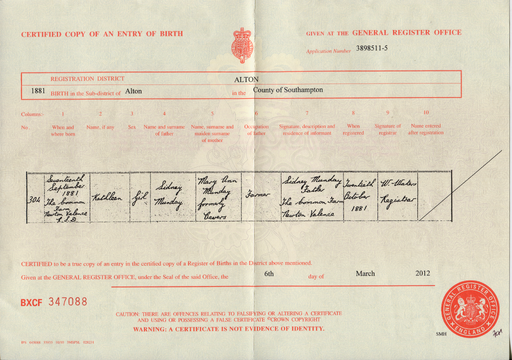 CERTIFIED COPY OF AN ENTRY OF BIRTH
GIVEN AT THE GENERAL REGISTER OFFICE
Application Number 3898511-5
REGISTRATION DISTRICT ALTON
1881 BIRTH in the Sub-district of Alton in the County of Southampton
Columns:- 1 2 3 4 5 6 7 8 9 10
No. When and where born Name, if any Sex Name and surname of father Name, surname and maiden surname of mother Occupation of father Signature, description and residence of informant When registered Signature of registrar Name entered after registration
304 Seventeenth September 1881 The Common Farm Newton Valence Kathleen Girl Sidney Munday Mary Ann Munday formerly Farmer Sidney Munday Father The Common Farm Newton Valence Twentieth October 1881 Registrar
CERTIFIED to be a true copy of an entry in the certified copy of a Register of Births in the District above mentioned.
Given at the GENERAL REGISTER OFFICE, under the Seal of the said Office, the 6th day of March 2012
BXCF 347088
CAUTION: THERE ARE OFFENCES RELATING TO FALSIFYING OR ALTERING A CERTIFICATE
AND USING OR POSSESSING A FALSE CERTIFICATE ©CROWN COPYRIGHT
WARNING: A CERTIFICATE IS NOT EVIDENCE OF IDENTITY.
GENERAL REGISTER OFFICE
ENGLAND